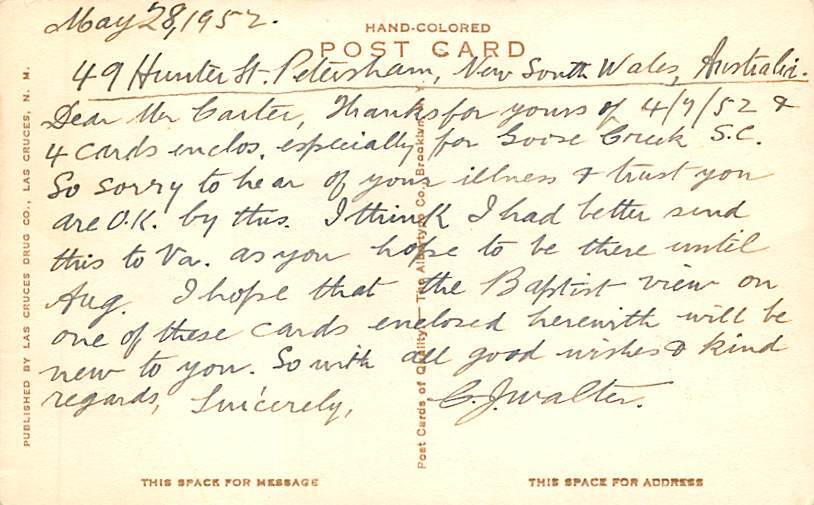 May 28, 1952.
HAND-COLORED
POST CARD
49 Hunter St. Petersham, New South Wales, Australia.
Dear Mr Carter, Thanks for yours of 4/7/52 &
4 cards enclos. especially for Goose Creek S.C.
So sorry to hear of your illness & trust you
are O.K. by this. I think I had better send
this to Va. as you hope to be there until
Aug. I hope that the Baptist view on
one of these cards enclosed herewith will be
new to you. So with all good wishes & kind
regards, Sincerely, C. J. Walter.
THIS SPACE FOR MESSAGE
THIS SPACE FOR ADDRESS
PUBLISHED BY LAS CRUCES DRUG CO., LAS CRUCES, N. M.
Post Cards of Quality. — The Albertype Co., Brooklyn, N. Y.